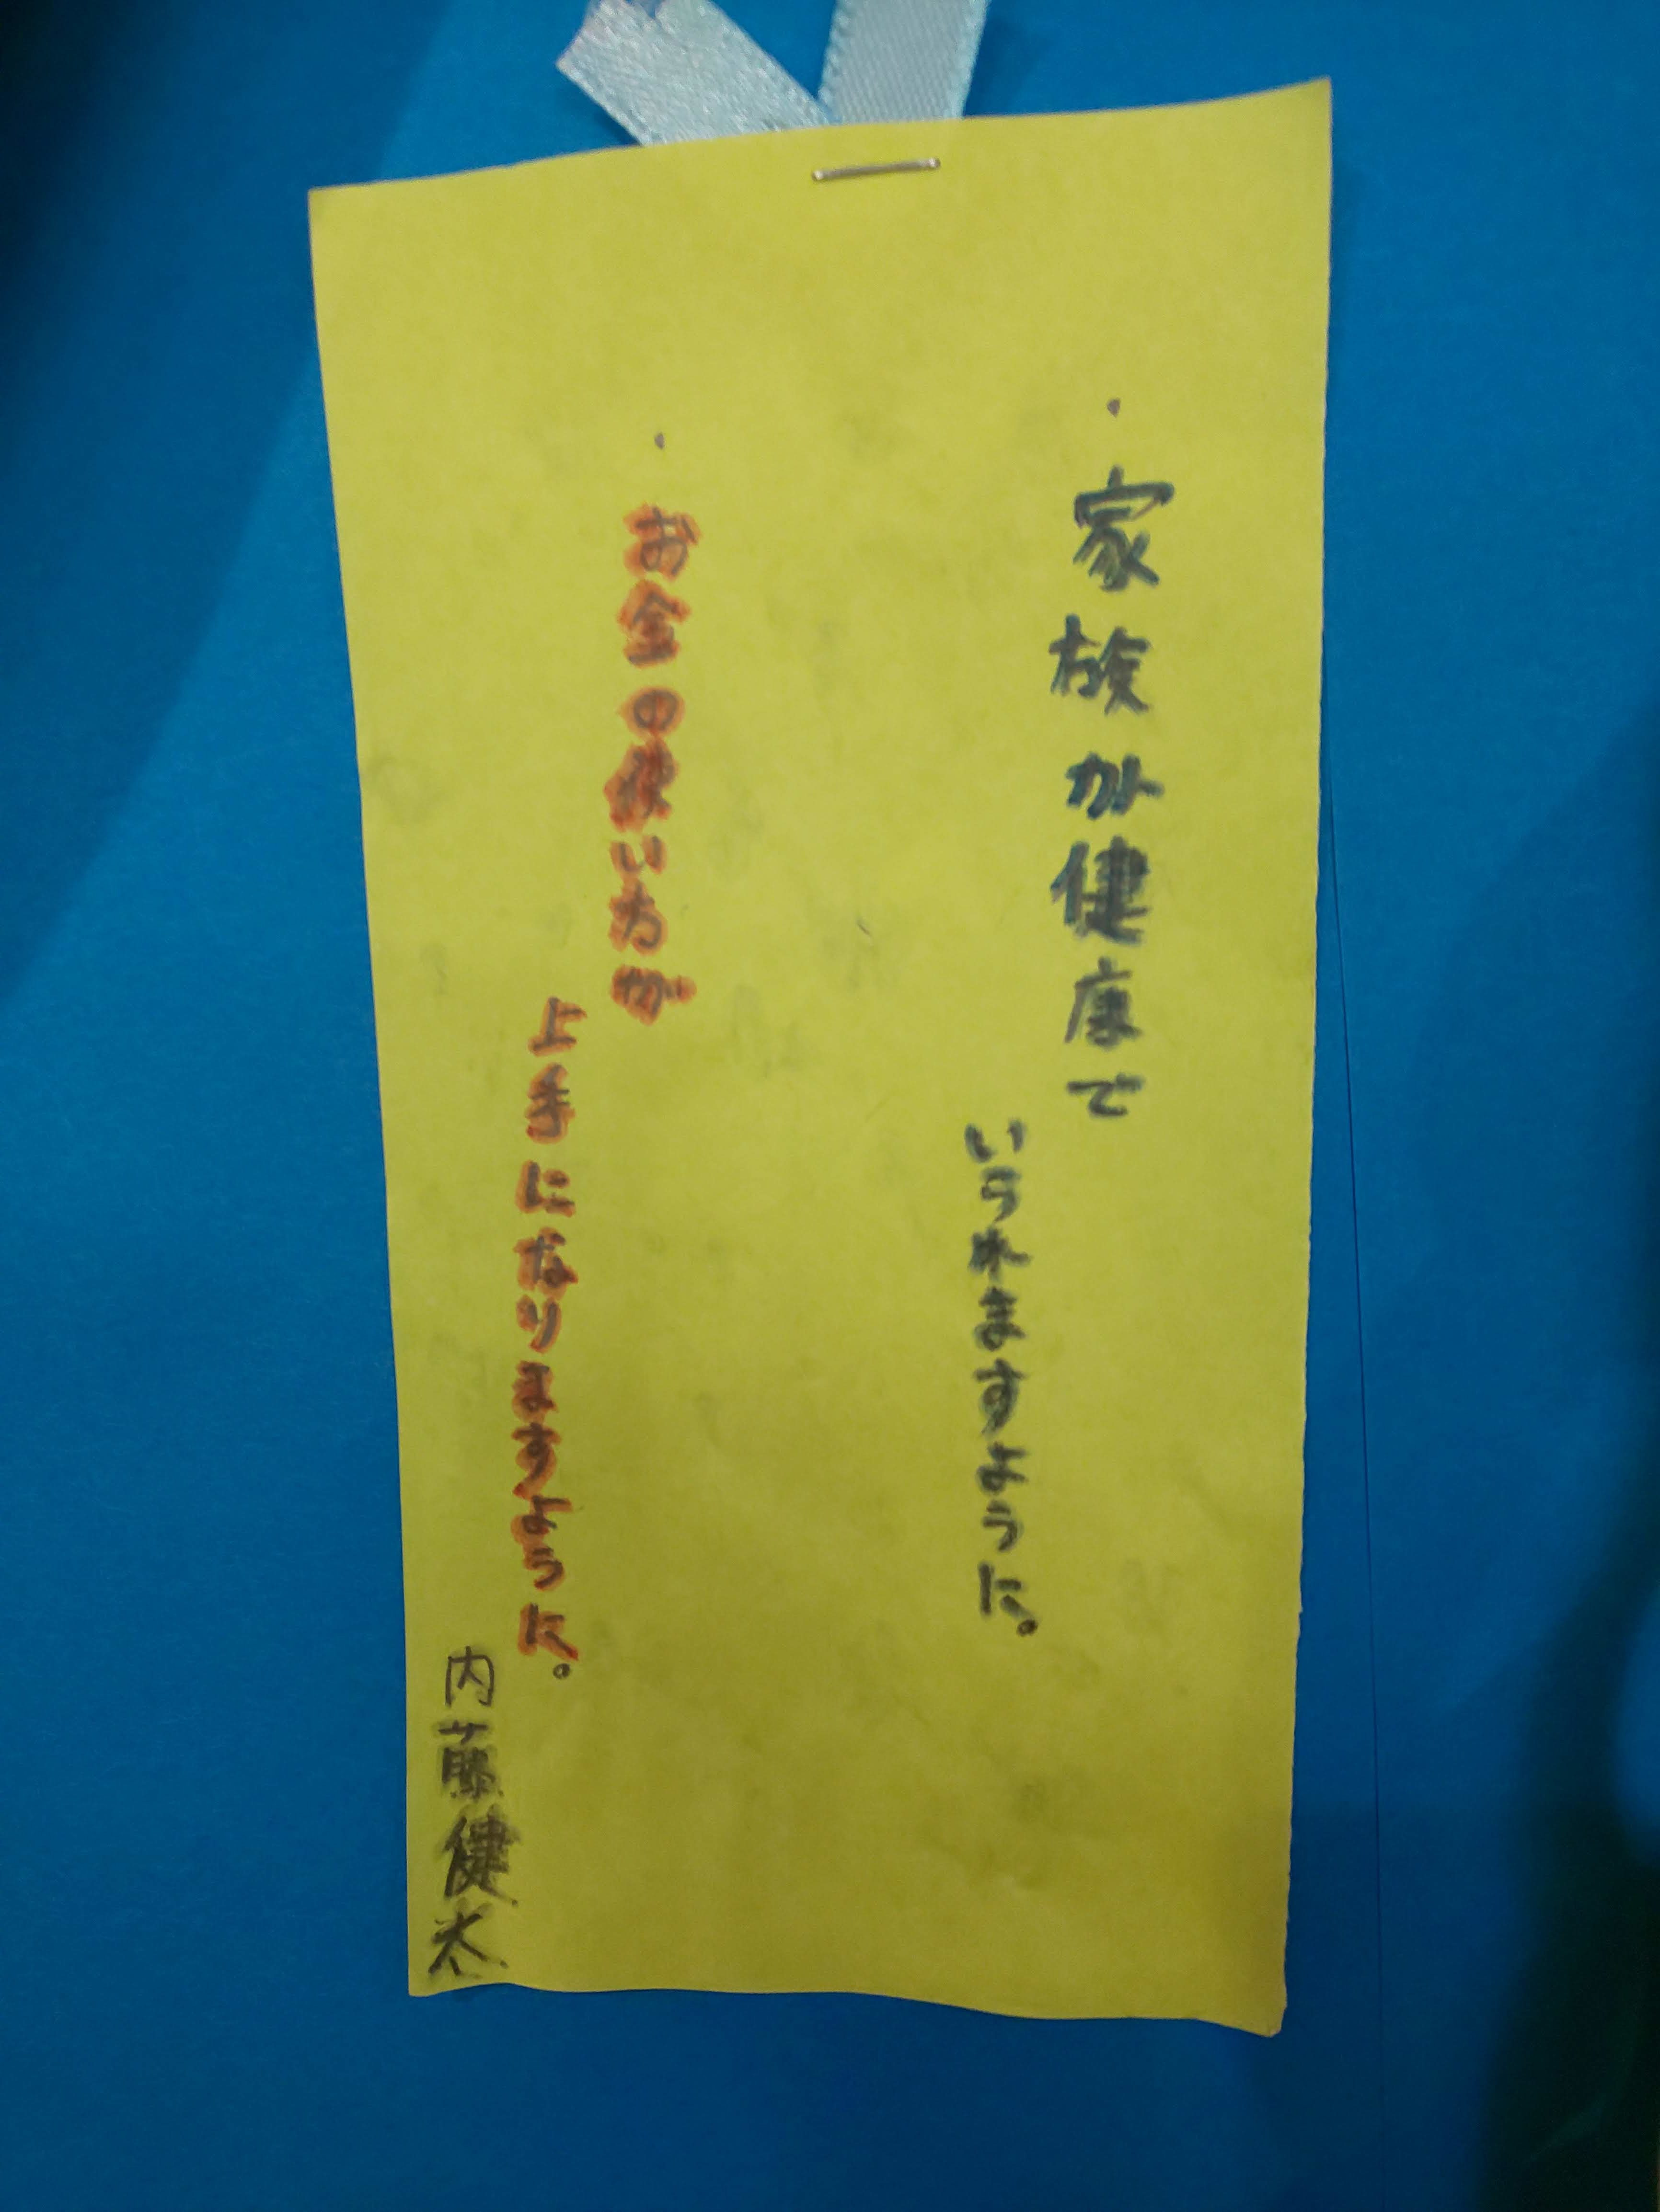 ・家族が健康で
いられますように。
・お金の使い方が
上手になりますように。
内藤健太